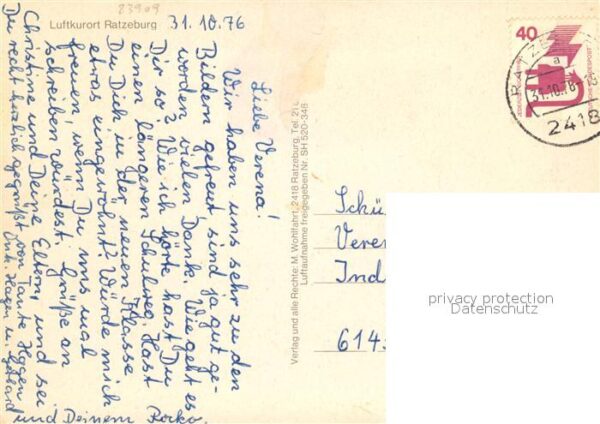 83909
Luftkurort Ratzeburg
31.10.76
Liebe Verena!
Wir haben uns sehr zu den
Bildern gefreut, sind ja gut ge-
worden, vielen Dank. Wie geht es
Dir so? Wie ich hörte hast Du
einen längeren Schulweg. Hast
Du Dich in der neuen Klasse
etwas eingewöhnt? Würde mich
freuen, wenn Du uns mal
schreiben würdest. Grüße an
Christine und Deine Eltern und sei
Du recht herzlich gegrüßt von Tante
Onk. Hagen u.
und Deinem
Verlag und alle Rechte: M. Wohlfahrt, 2418 Ratzeburg, Tel. 21
Luftaufnahme freigegeben Nr. SH 520-346
40
DEUTSCHE BUNDESPOST
RATZE
a
31.10.76
2418
Schü
Veren
Ind
614
privacy protection
Datenschutz